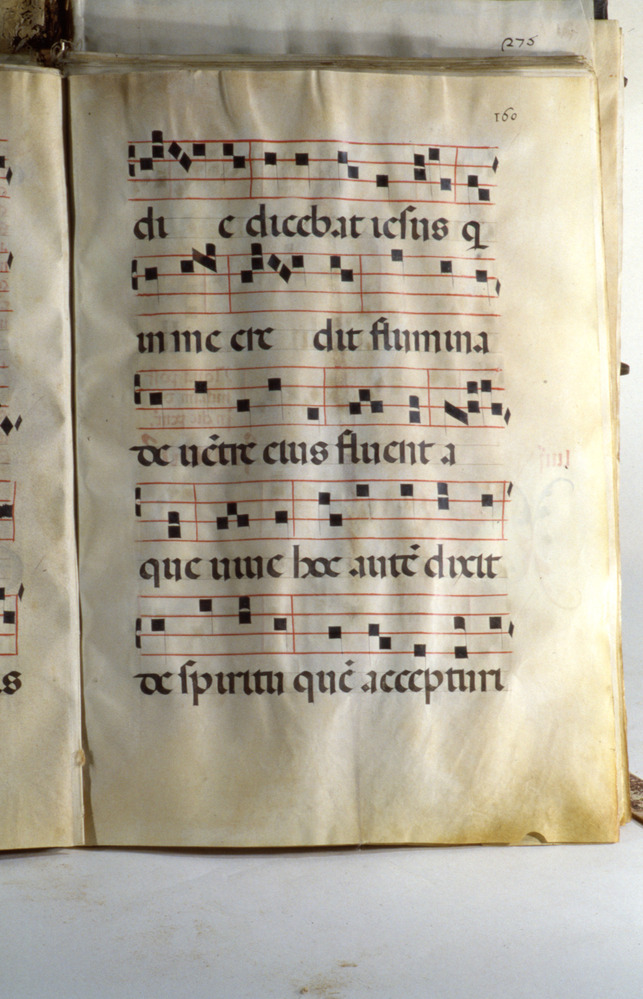 275
160
di e dicebat iesus q
in me cre dit flumina
de uẽtre eius fluent a
que uiue hoc autẽ dixit
de spiritu quẽ accepturi
s